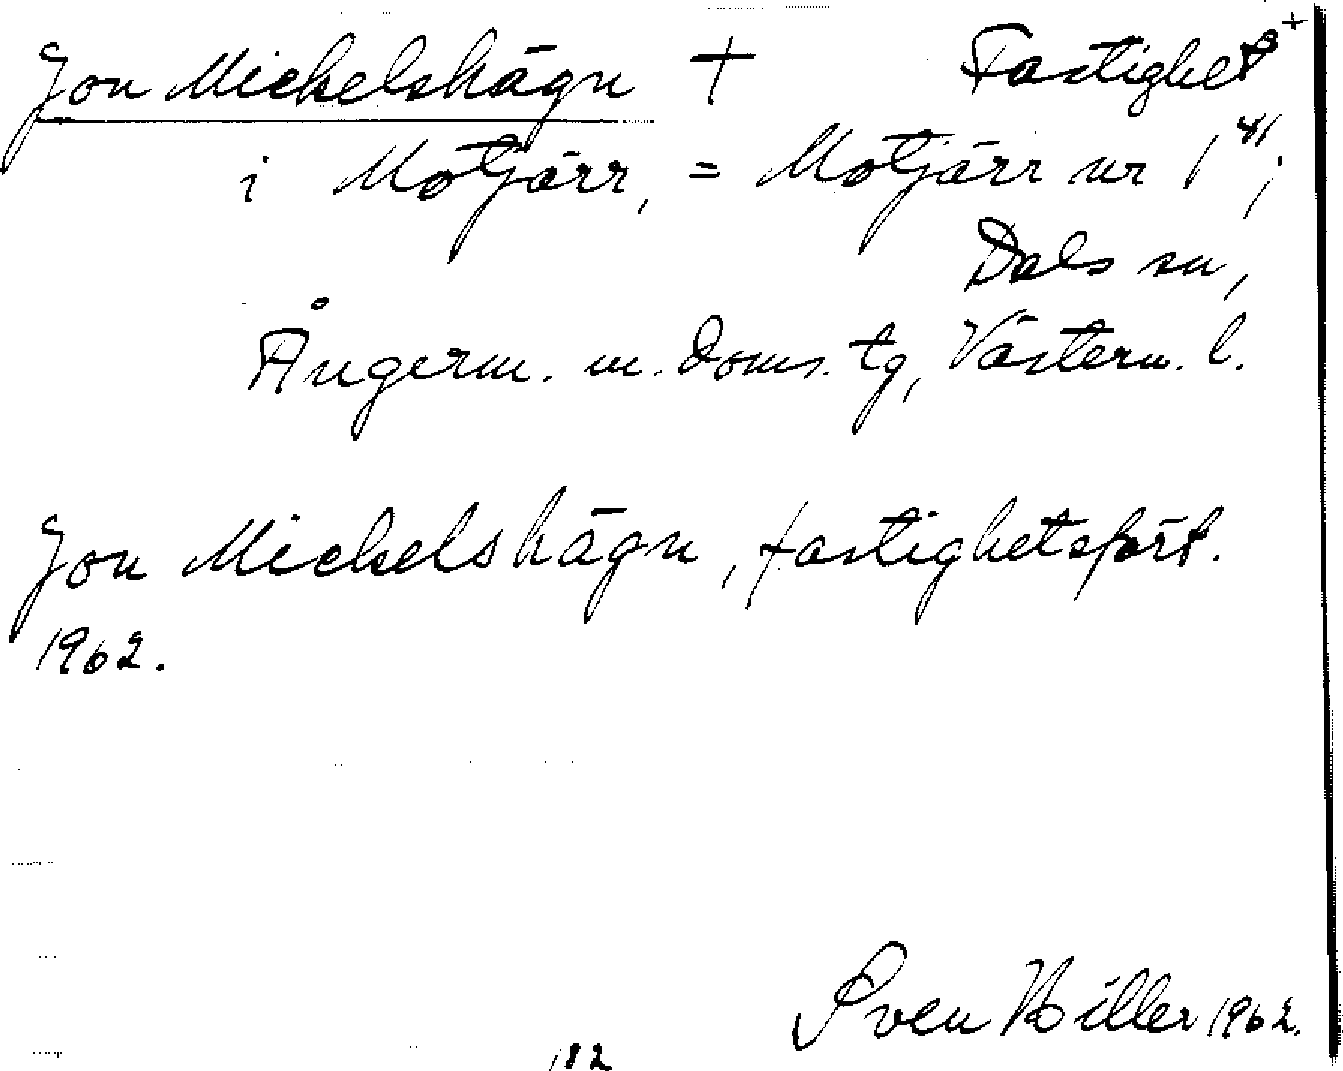 Jon Mickelshägn + Fastighet +
i Motjärr, = Motjärr nr 1 41;
Dals sn,
Ångerm. m. doms. tg, Västern. l.
Jon Mickelshägn, fastighetsfört.
1962.
Sven Hiller 1962.
182